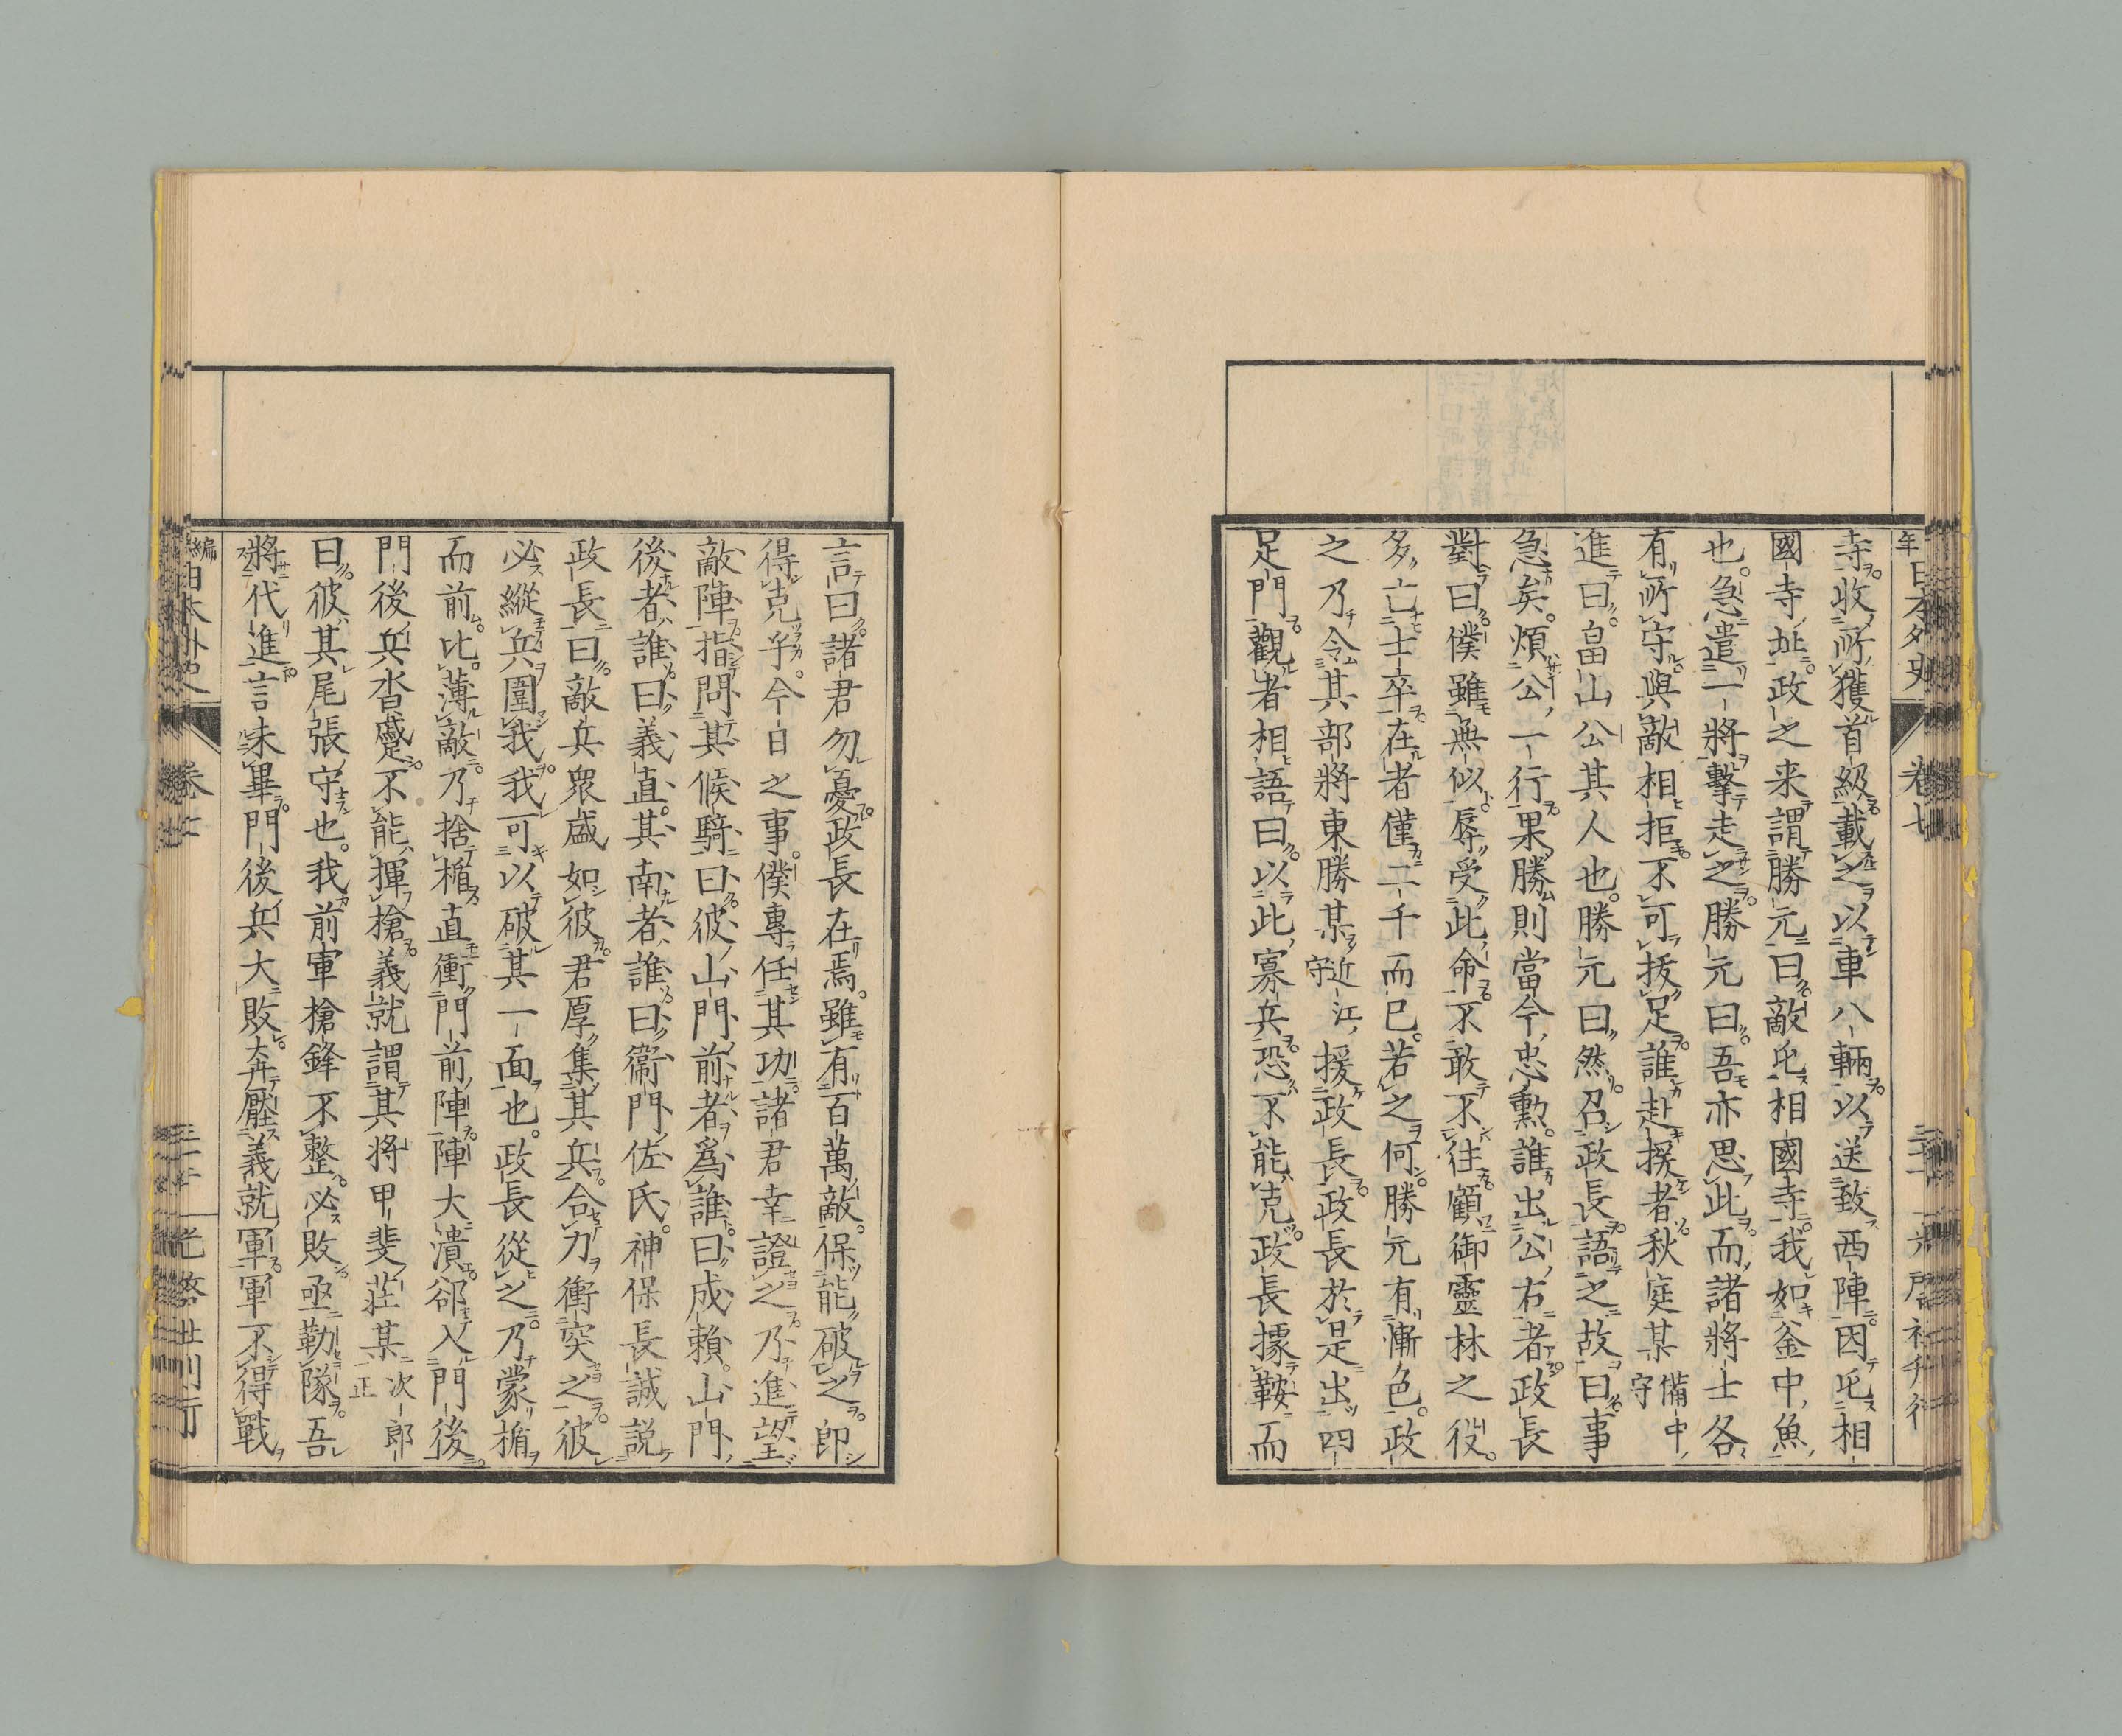 寺收所獲首級載之以車八輛以送致西陣因屯相
國寺址政之來謂勝元曰敵屯相國寺我如釜中魚
也急遣一將擊走之勝元曰吾亦思此而諸將士各
有所守與敵相拒不可拔足誰赴援者秋庭某備中守
進曰畠山公其人也勝元曰然召政長語之故曰事
急矣煩公一行果勝則當今忠勲誰出公右者政長
對曰僕雖無似辱受此命不敢不往顧御靈林之役
多亡士卒在者僅二千而已若之何勝元有慚色政
之乃令其部將東勝某近江守援政長政長於是出四
足門觀者相語曰以此寡兵恐不能克政長據鞍而
言曰諸君勿憂政長在焉雖有百萬敵保能破之即
得克乎今日之事僕專任其功諸君幸證之乃進望
敵陣指問其候騎曰彼山門前者爲誰曰成賴山門
後者誰曰義直其南者誰曰衞門佐氏神保長誠説
政長曰敵兵衆盛如彼君厚集其兵合力衝突之彼
必縱兵圍我我可以破其一面也政長從之乃蒙楯
而前比薄敵乃捨楯直衝門前陣陣大潰卻入門後
門後兵沓蹙不能揮槍義就謂其將甲斐莊某二次郎一正
曰彼其尾張守也我前軍槍鋒不整必敗亟勒隊吾
將代進言未畢門後兵大敗奔壓義就軍軍不得戰
卷七